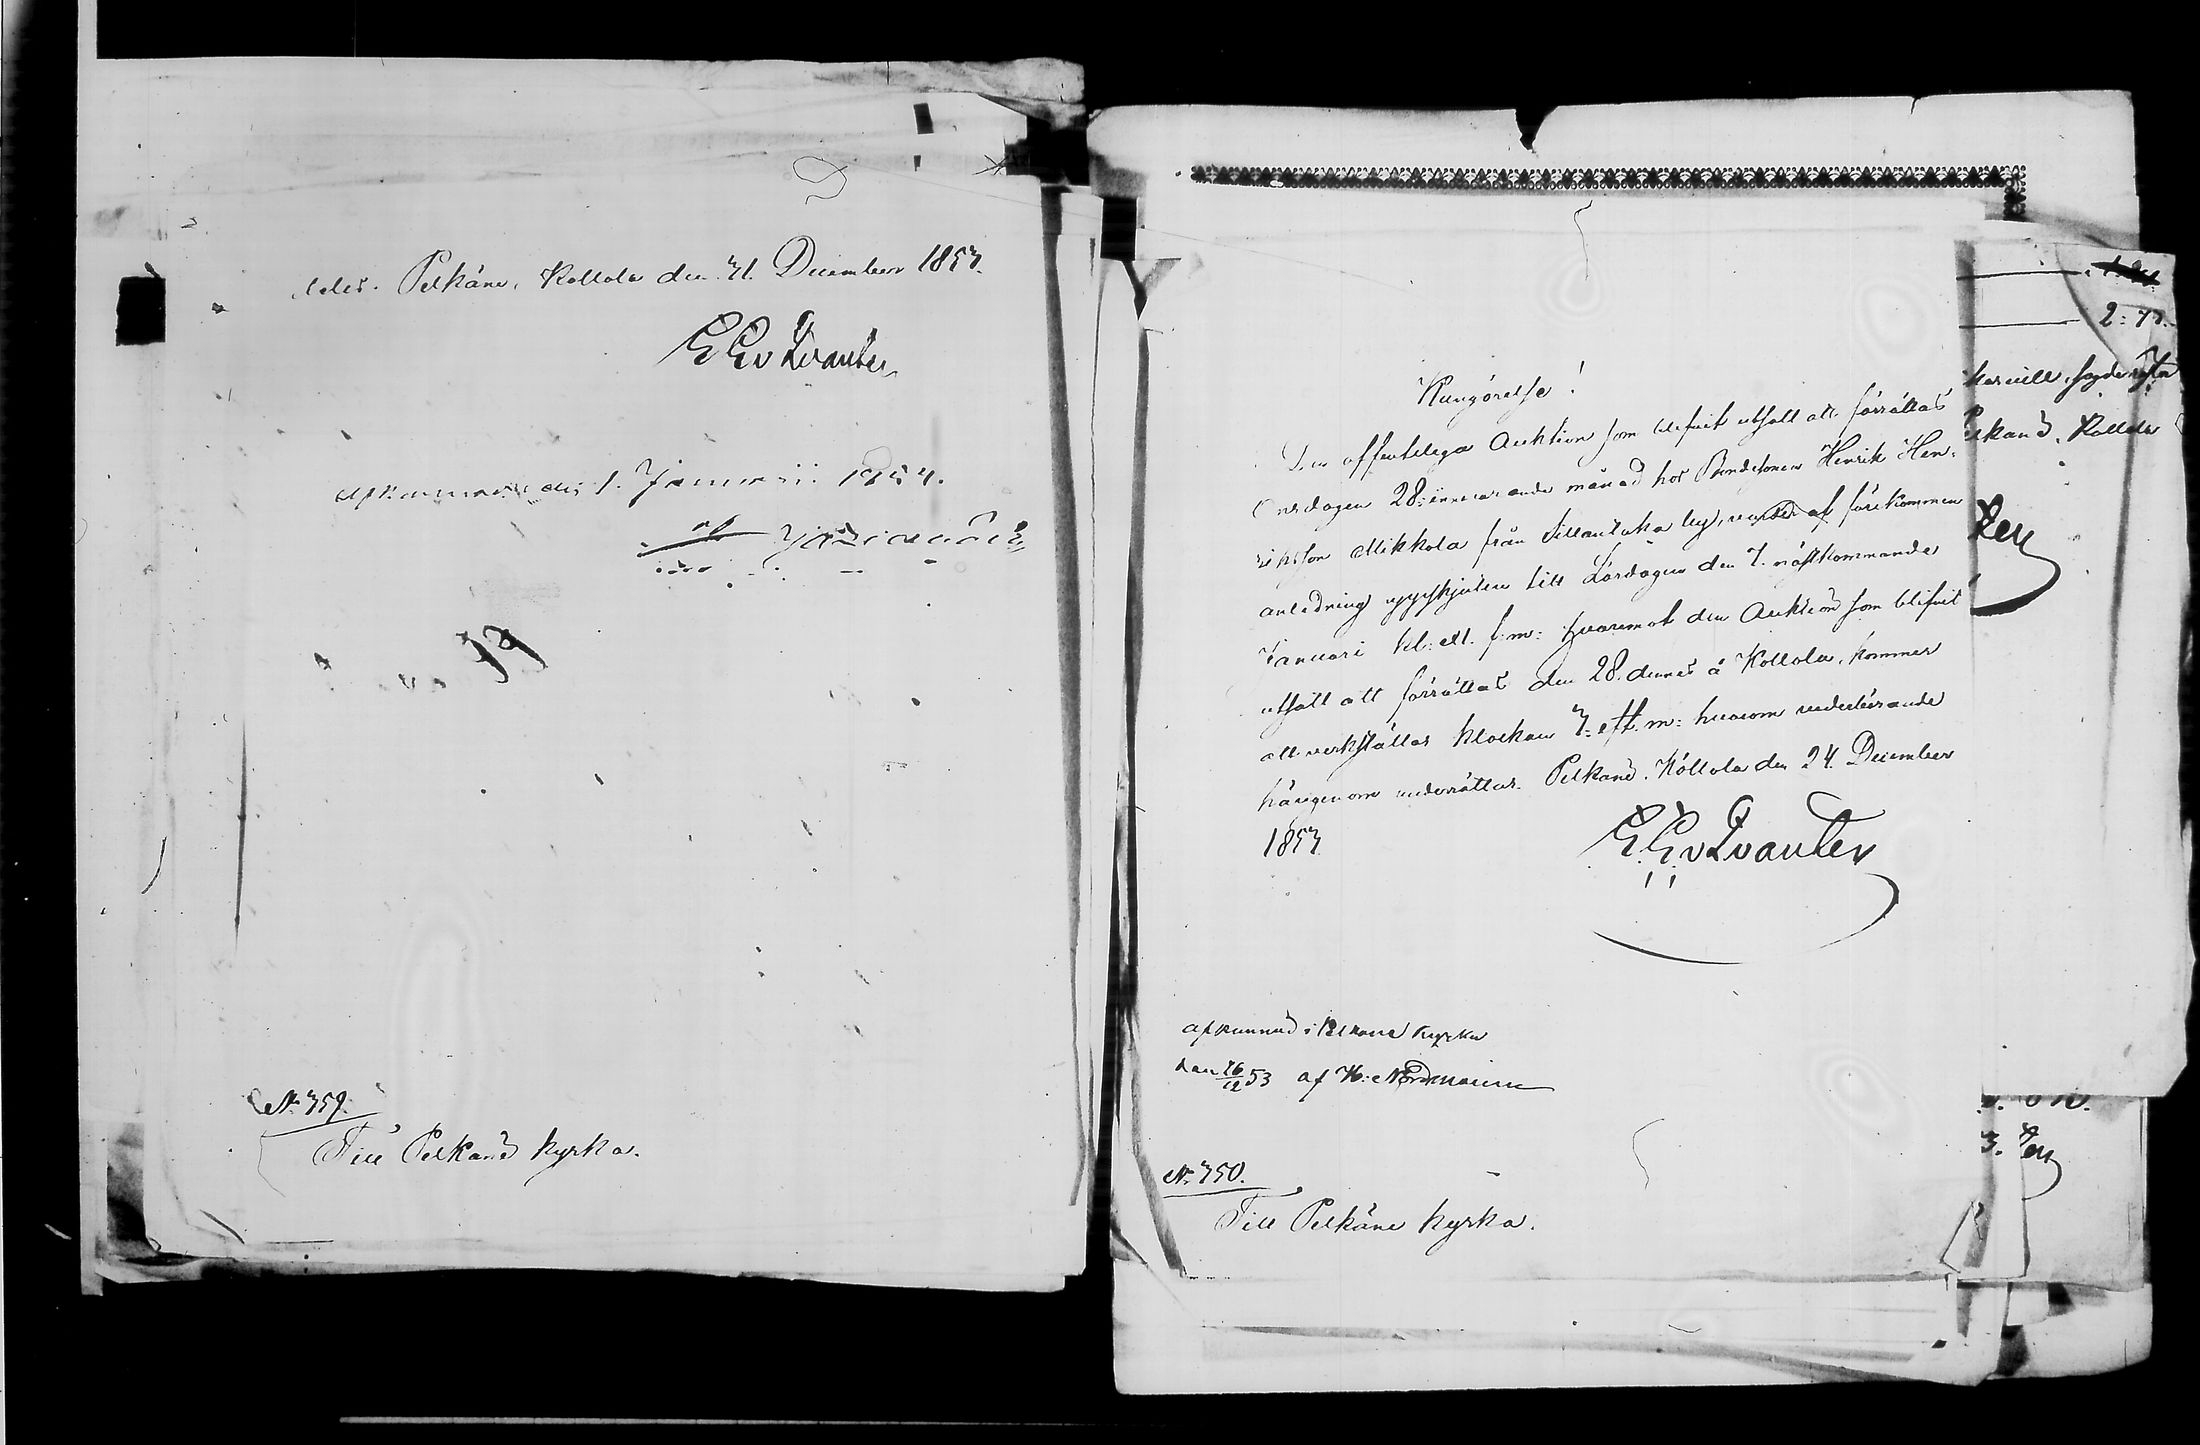 deles. Pelkäne, Kollola den 31. December 1853.
E E v Qvanten
afkunnad den 1. Januarii 1854.
af
No 359.
Till Pelkäne Kyrka.
Kungörelse!
Den offentelega Auktion som blifvit utsatt att förrättas
Onsdagen 28. innevarande månad hos Bondesonen Henrik Hen-
riksson Mikkola från Sittantaka by, varder af förekommen
anledning uppskjuten till Lördagen den 7. nästkommande
Januari kl: ell. f.m: hvaremot den Auktion som blifvit
utsatt att förrättas den 28. dennes å Kollola, kommer
att verkställas klockan 3. eft. m: hvarom vederbörande
härigenom underrättas. Pelkäne, Kollola den 24. December
1853.
E. E. v Qvanten
afkunnad i Pelkäne Kyrka
den 26/12 53 af H: Nordmann
No 350.
Till Pelkäne Kyrka.
2: 73.
Pelkäne, Kollola